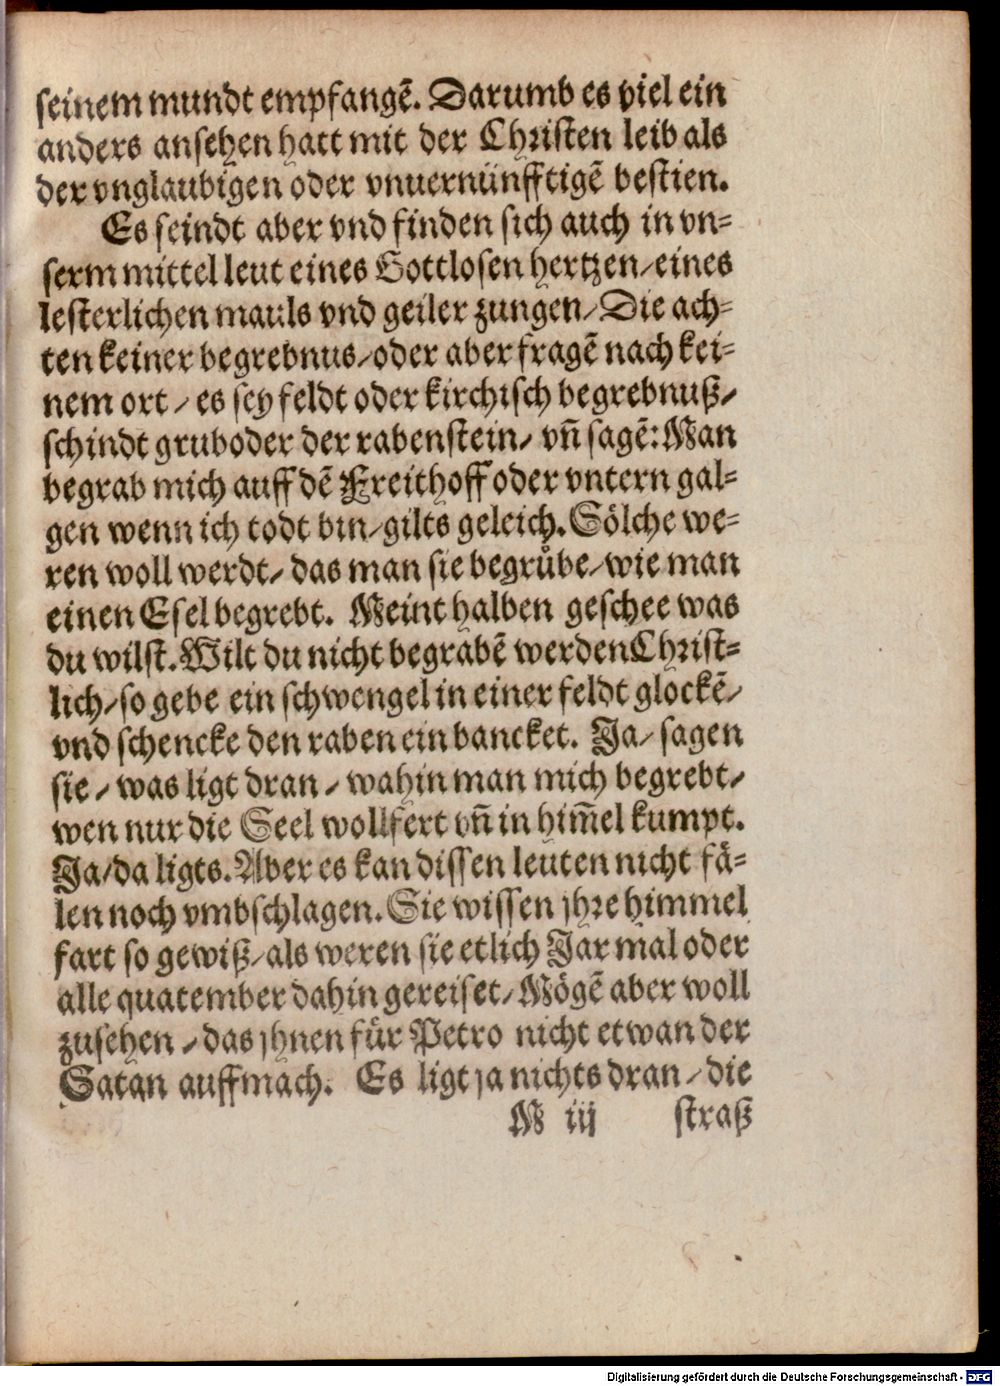 seinem mundt empfangē. Darumb es viel ein
anders ansehen hatt mit der Christen leib als
der vnglaubigen oder vnuernünfftigē bestien.
Es seindt aber vnd finden sich auch in vn=
serm mittel leut eines Gottlosen hertzen/eines
lesterlichen mauls vnd geiler zungen/Die ach=
ten keiner begrebnus/oder aber fragē nach kei=
nem ort/es sey feldt oder kirchisch begrebnuß/
schindt grub oder der rabenstein/vn̄ sagē: Man
begrab mich auff dē Freithoff oder vntern gal=
gen wenn ich todt bin/gilts geleich. Sölche we=
ren woll werdt/das man sie begrübe/wie man
einen Esel begrebt. Meint halben geschee was
du wilst. Wilt du nicht begrabē werden Christ=
lich/so gebe ein schwengel in einer feldt glockē/
vnd schencke den raben ein bancket. Ja/sagen
sie/was ligt dran/wahin man mich begrebt/
wen nur die Seel wollfert vn̄ in him̄el kumpt.
Ja/da ligts. Aber es kan dissen leuten nicht fä=
len noch vmbschlagen. Sie wissen jhre himmel
fart so gewiß/als weren sie etlich Jar mal oder
alle quatember dahin gereiset/Mögē aber woll
zusehen/das jhnen für Petro nicht etwan der
Satan auffmach. Es ligt ja nichts dran/die
M iij straß
Digitalisierung gefördert durch die Deutsche Forschungsgemeinschaft - DFG